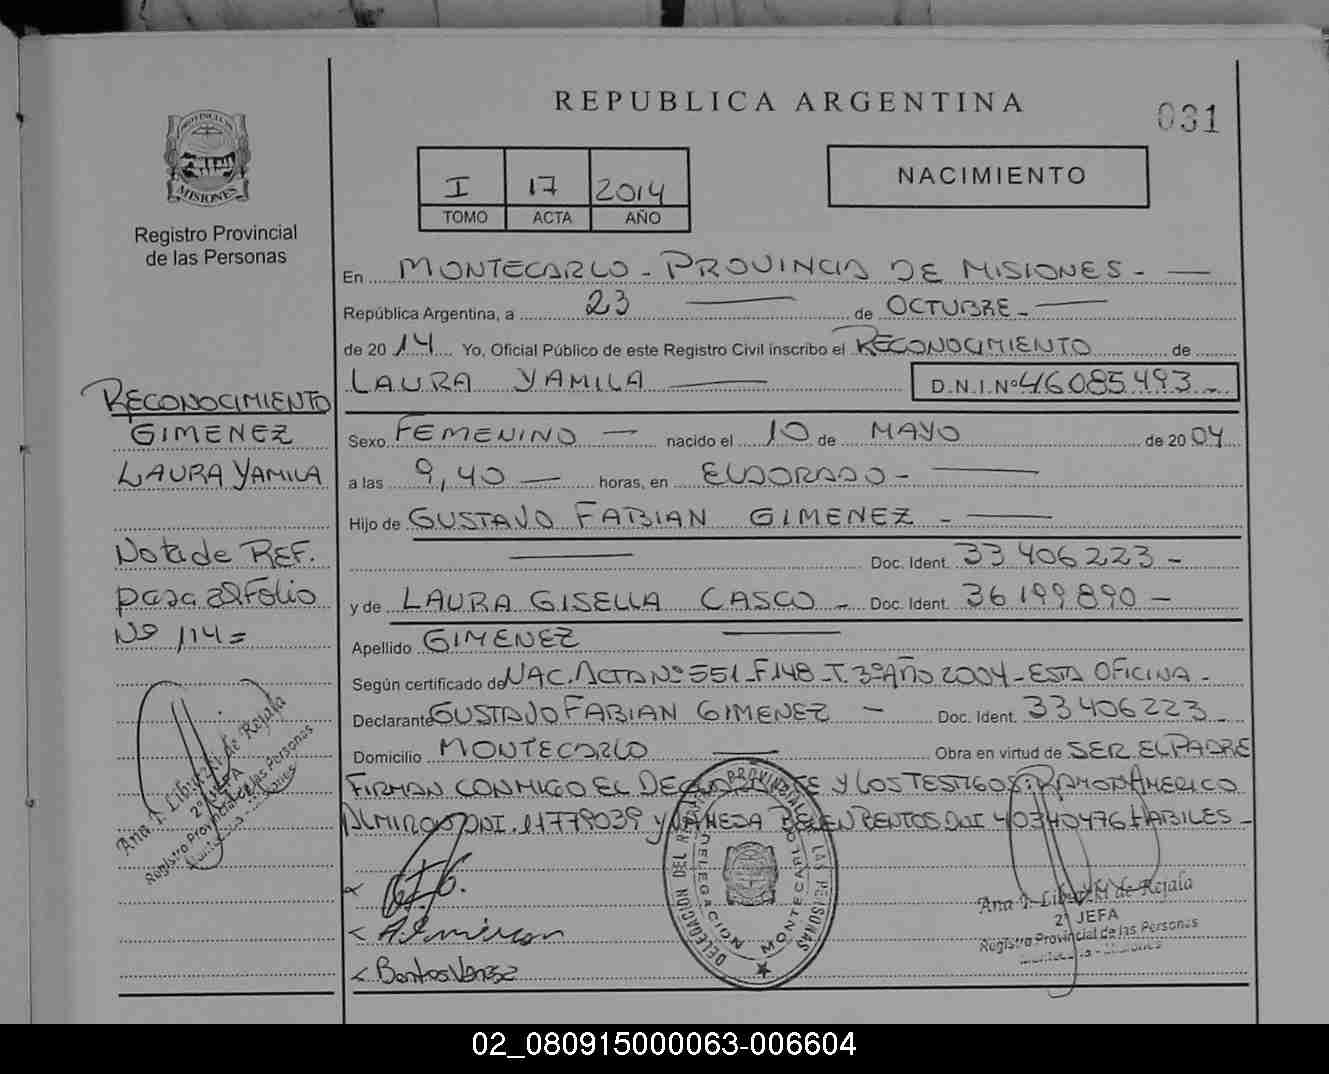 REPUBLICA ARGENTINA
031
PROVINCIA DE
MISIONES
Registro Provincial
de las Personas
I 17 2014
TOMO ACTA AÑO
NACIMIENTO
En MONTECARLO - PROVINCIA DE MISIONES -
República Argentina, a 23 de OCTUBRE -
de 20 14 Yo, Oficial Público de este Registro Civil inscribo el RECONOCIMIENTO de
LAURA YAMILA D.N.I.Nº 46085493 -
Sexo FEMENINO - nacido el 10 de MAYO de 20 04
a las 9,40 horas, en ELDORADO -
Hijo de GUSTAVO FABIAN GIMENEZ -
Doc. Ident. 33406223 -
y de LAURA GISELLA CASCO - Doc. Ident. 36199890 -
Apellido GIMENEZ
Según certificado de NAC. ACTA Nº 551 - F148 - T. 3º AÑO 2004 - ESTA OFICINA -
Declarante GUSTAVO FABIAN GIMENEZ - Doc. Ident. 33406223 -
Domicilio MONTECARLO Obra en virtud de SER EL PADRE
FIRMAN CONMIGO EL DECLARANTE Y LOS TESTIGOS: RAMON AMERICO
ALMIRON DNI. 11779039 Y BELEN BENTOS DNI 40340476 HABILES -
RECONOCIMIENTO
GIMENEZ
LAURA YAMILA
Nota de REF.
para al Folio
Nº 114 =
Ana I. de Rejala
2ª JEFA
Registro Provincial de las Personas
DELEGACION DEL REGISTRO PROVINCIAL DE LAS PERSONAS
DELEGACION MONTECARLO
Ana I. de Rejala
2ª JEFA
Registro Provincial de las Personas
02_080915000063-006604